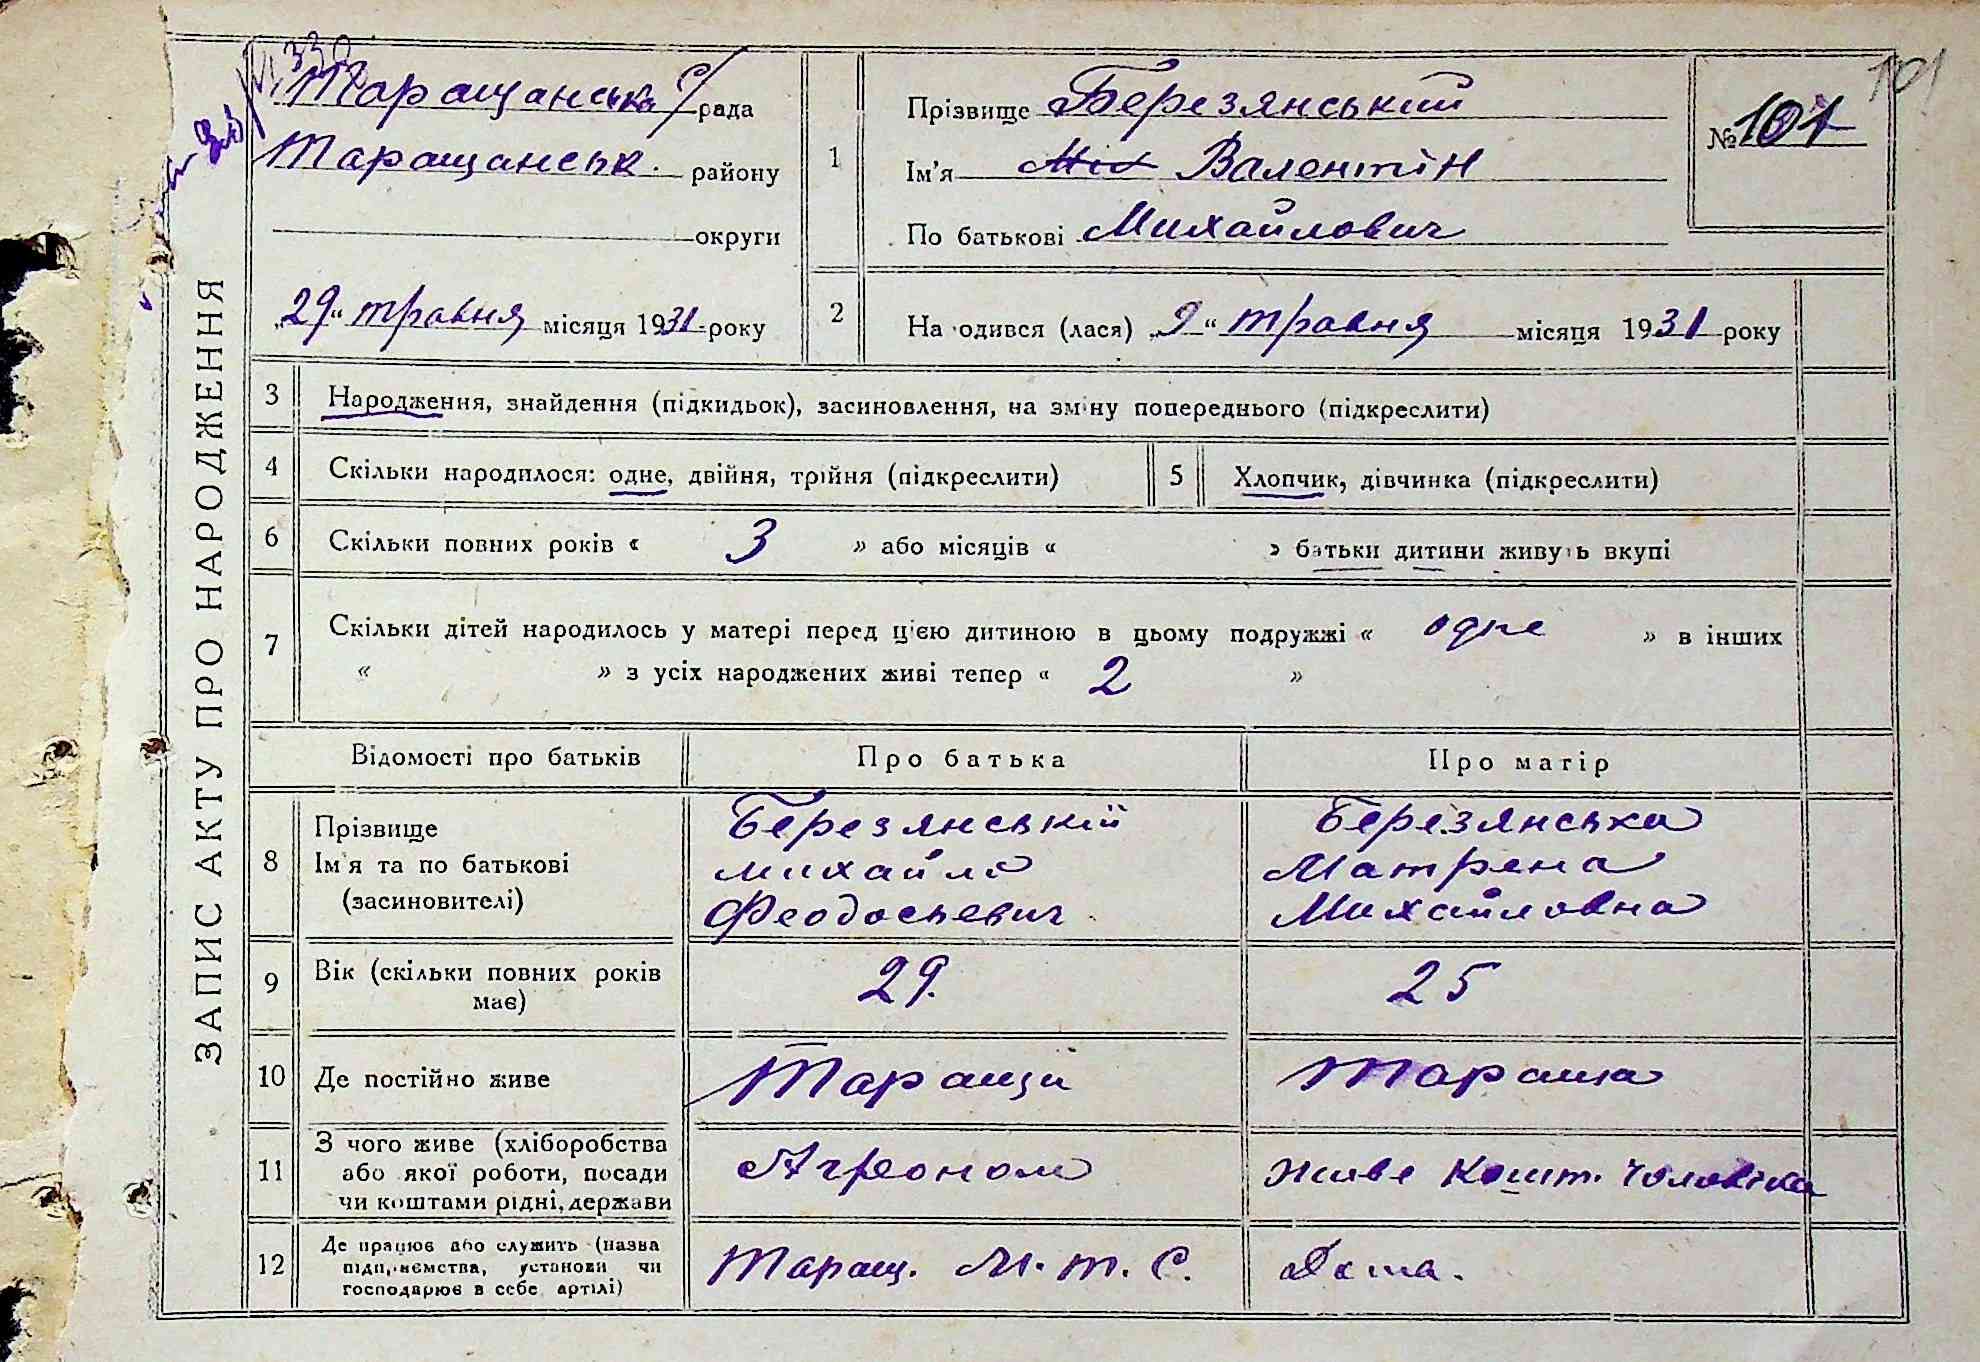 ЗАПИС АКТУ ПРО НАРОДЖЕННЯ
Таращанська с/рада
Таращанськ. району
округи
„29“ травня місяця 1931 року
1
Прізвище Березянський
Ім'я Міх Валентін
По батькові Михайлович
№ 101
101
2
На одився (лася) „9“ травня місяця 1931 року
3 Народження, знайдення (підкидьок), засиновлення, на зміну попереднього (підкреслити)
4 Скільки народилося: одне, двійня, трійня (підкреслити) 5 Хлопчик, дівчинка (підкреслити)
6 Скільки повних років « 3 » або місяців « » батьки дитини живуть вкупі
7 Скільки дітей народилось у матері перед цією дитиною в цьому подружжі « одне » в інших
« » з усіх народжених живі тепер « 2 »
Відомості про батьків Про батька Про матір
8 Прізвище Березянський Березянська
Ім'я та по батькові Михайло Матрена
(засиновителі) Феодосьевич Михайловна
9 Вік (скільки повних років має) 29. 25
10 Де постійно живе Таращи Тараща
11 З чого живе (хліборобства Агроном Живе кошт. чоловіка
або якої роботи, посади
чи коштами рідні, держави
12 Де працює або служить (назва Таращ. М.Т.С. Дома.
підприємства, установи чи
господарює в себе артілі)